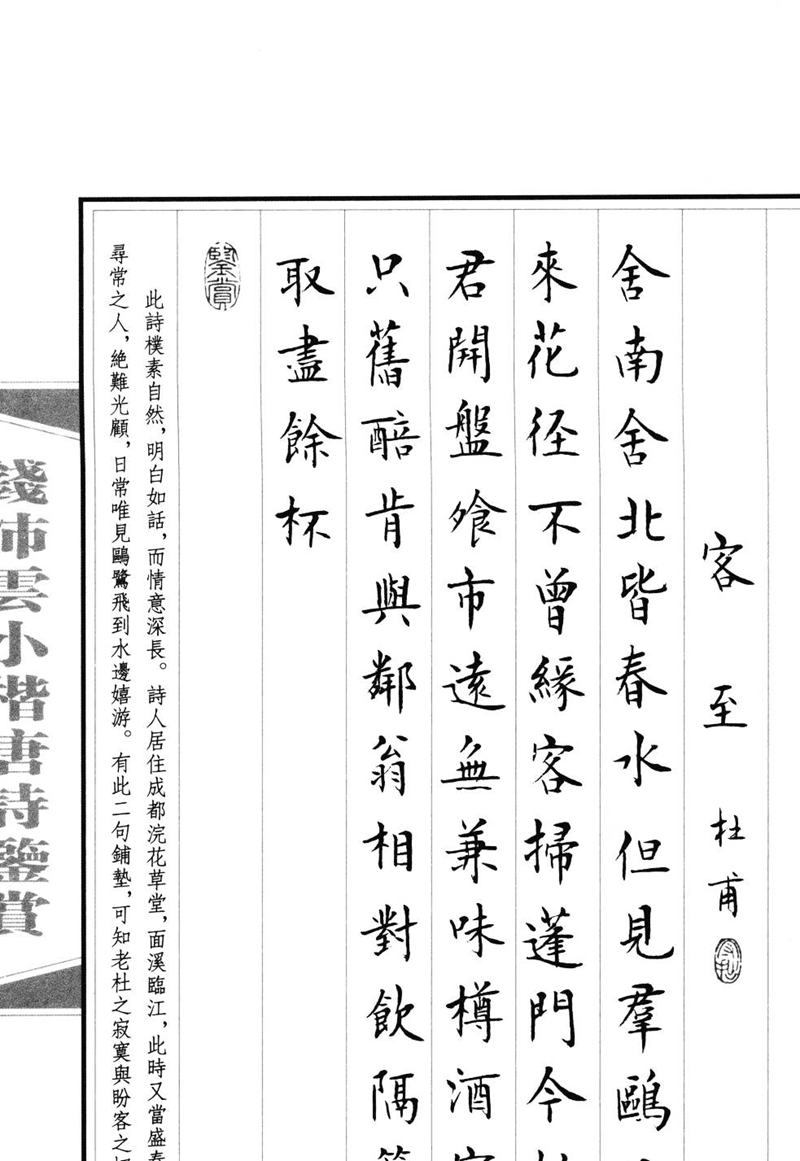 客至 杜甫
舍南舍北皆春水但見羣鷗
來花径不曾緣客掃蓬門今
君開盤飧市遠無兼味樽酒
只舊醅肯與鄰翁相對飲隔
取盡餘杯
鑒賞
此詩樸素自然，明白如話，而情意深長。詩人居住成都浣花草堂，面溪臨江，此時又當盛春
尋常之人，絶難光顧，日常唯見鷗鷺飛到水邊嬉游。有此二句鋪墊，可知老杜之寂寞與盼客之
錢沛雲小楷唐詩鑒賞